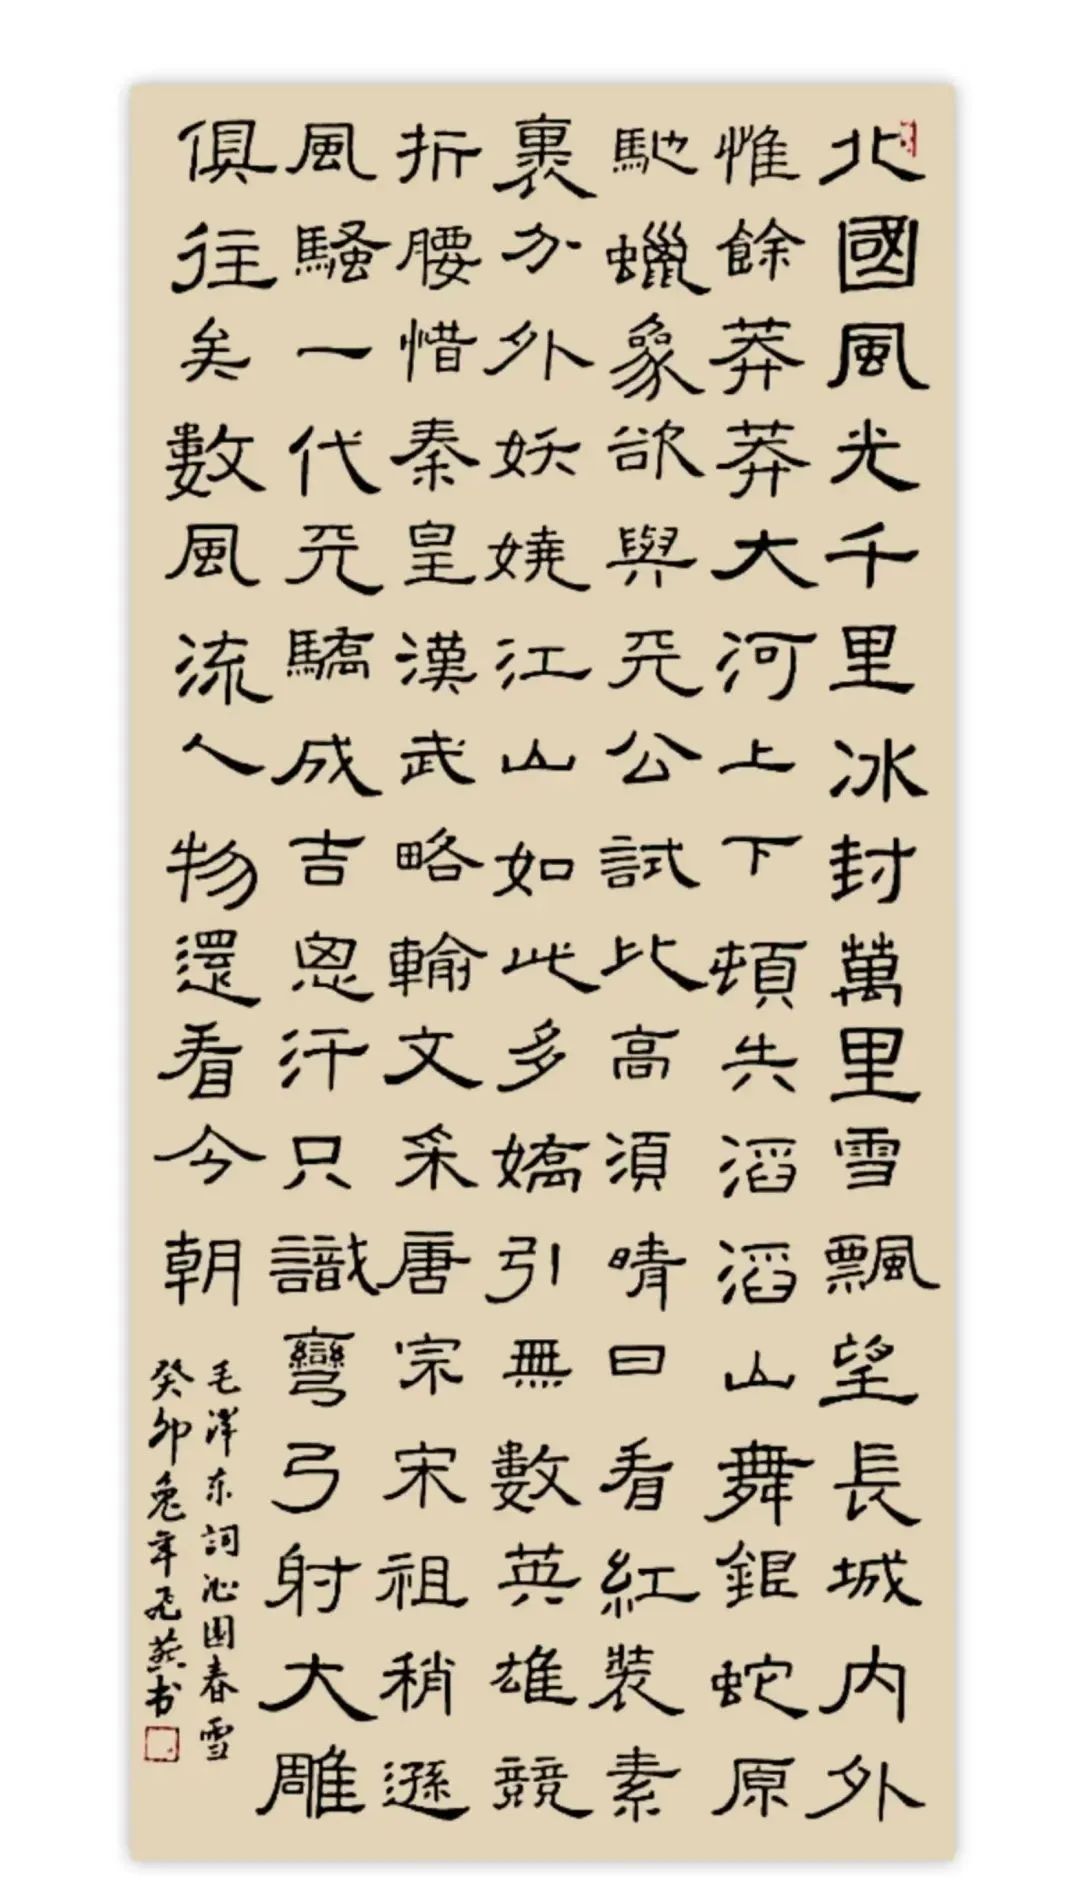 北國風光千里冰封萬里雪飄望長城内外
惟餘莽莽大河上下頓失滔滔山舞銀蛇原
馳蠟象欲與天公試比高須晴日看紅裝素
裹分外妖嬈江山如此多嬌引無數英雄競
折腰惜秦皇漢武略輸文采唐宗宋祖稍遜
風騷一代天驕成吉思汗只識彎弓射大雕
俱往矣數風流人物還看今朝
毛泽东詞沁園春雪
癸卯兔年飞燕书